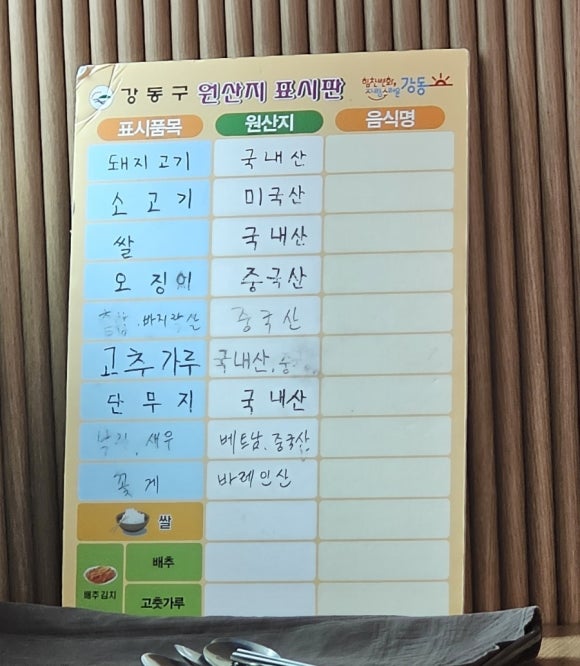 강동구 원산지 표시판 힘찬변화, 자랑스러운 강동
표시품목 원산지 음식명
돼지고기 국내산
소고기 미국산
쌀 국내산
오징어 중국산
홍합, 바지락살 중국산
고추가루 국내산, 중
단무지 국내산
낙지, 새우 베트남, 중국산
꽃게 바레인산
쌀
배추김치 배추
고춧가루